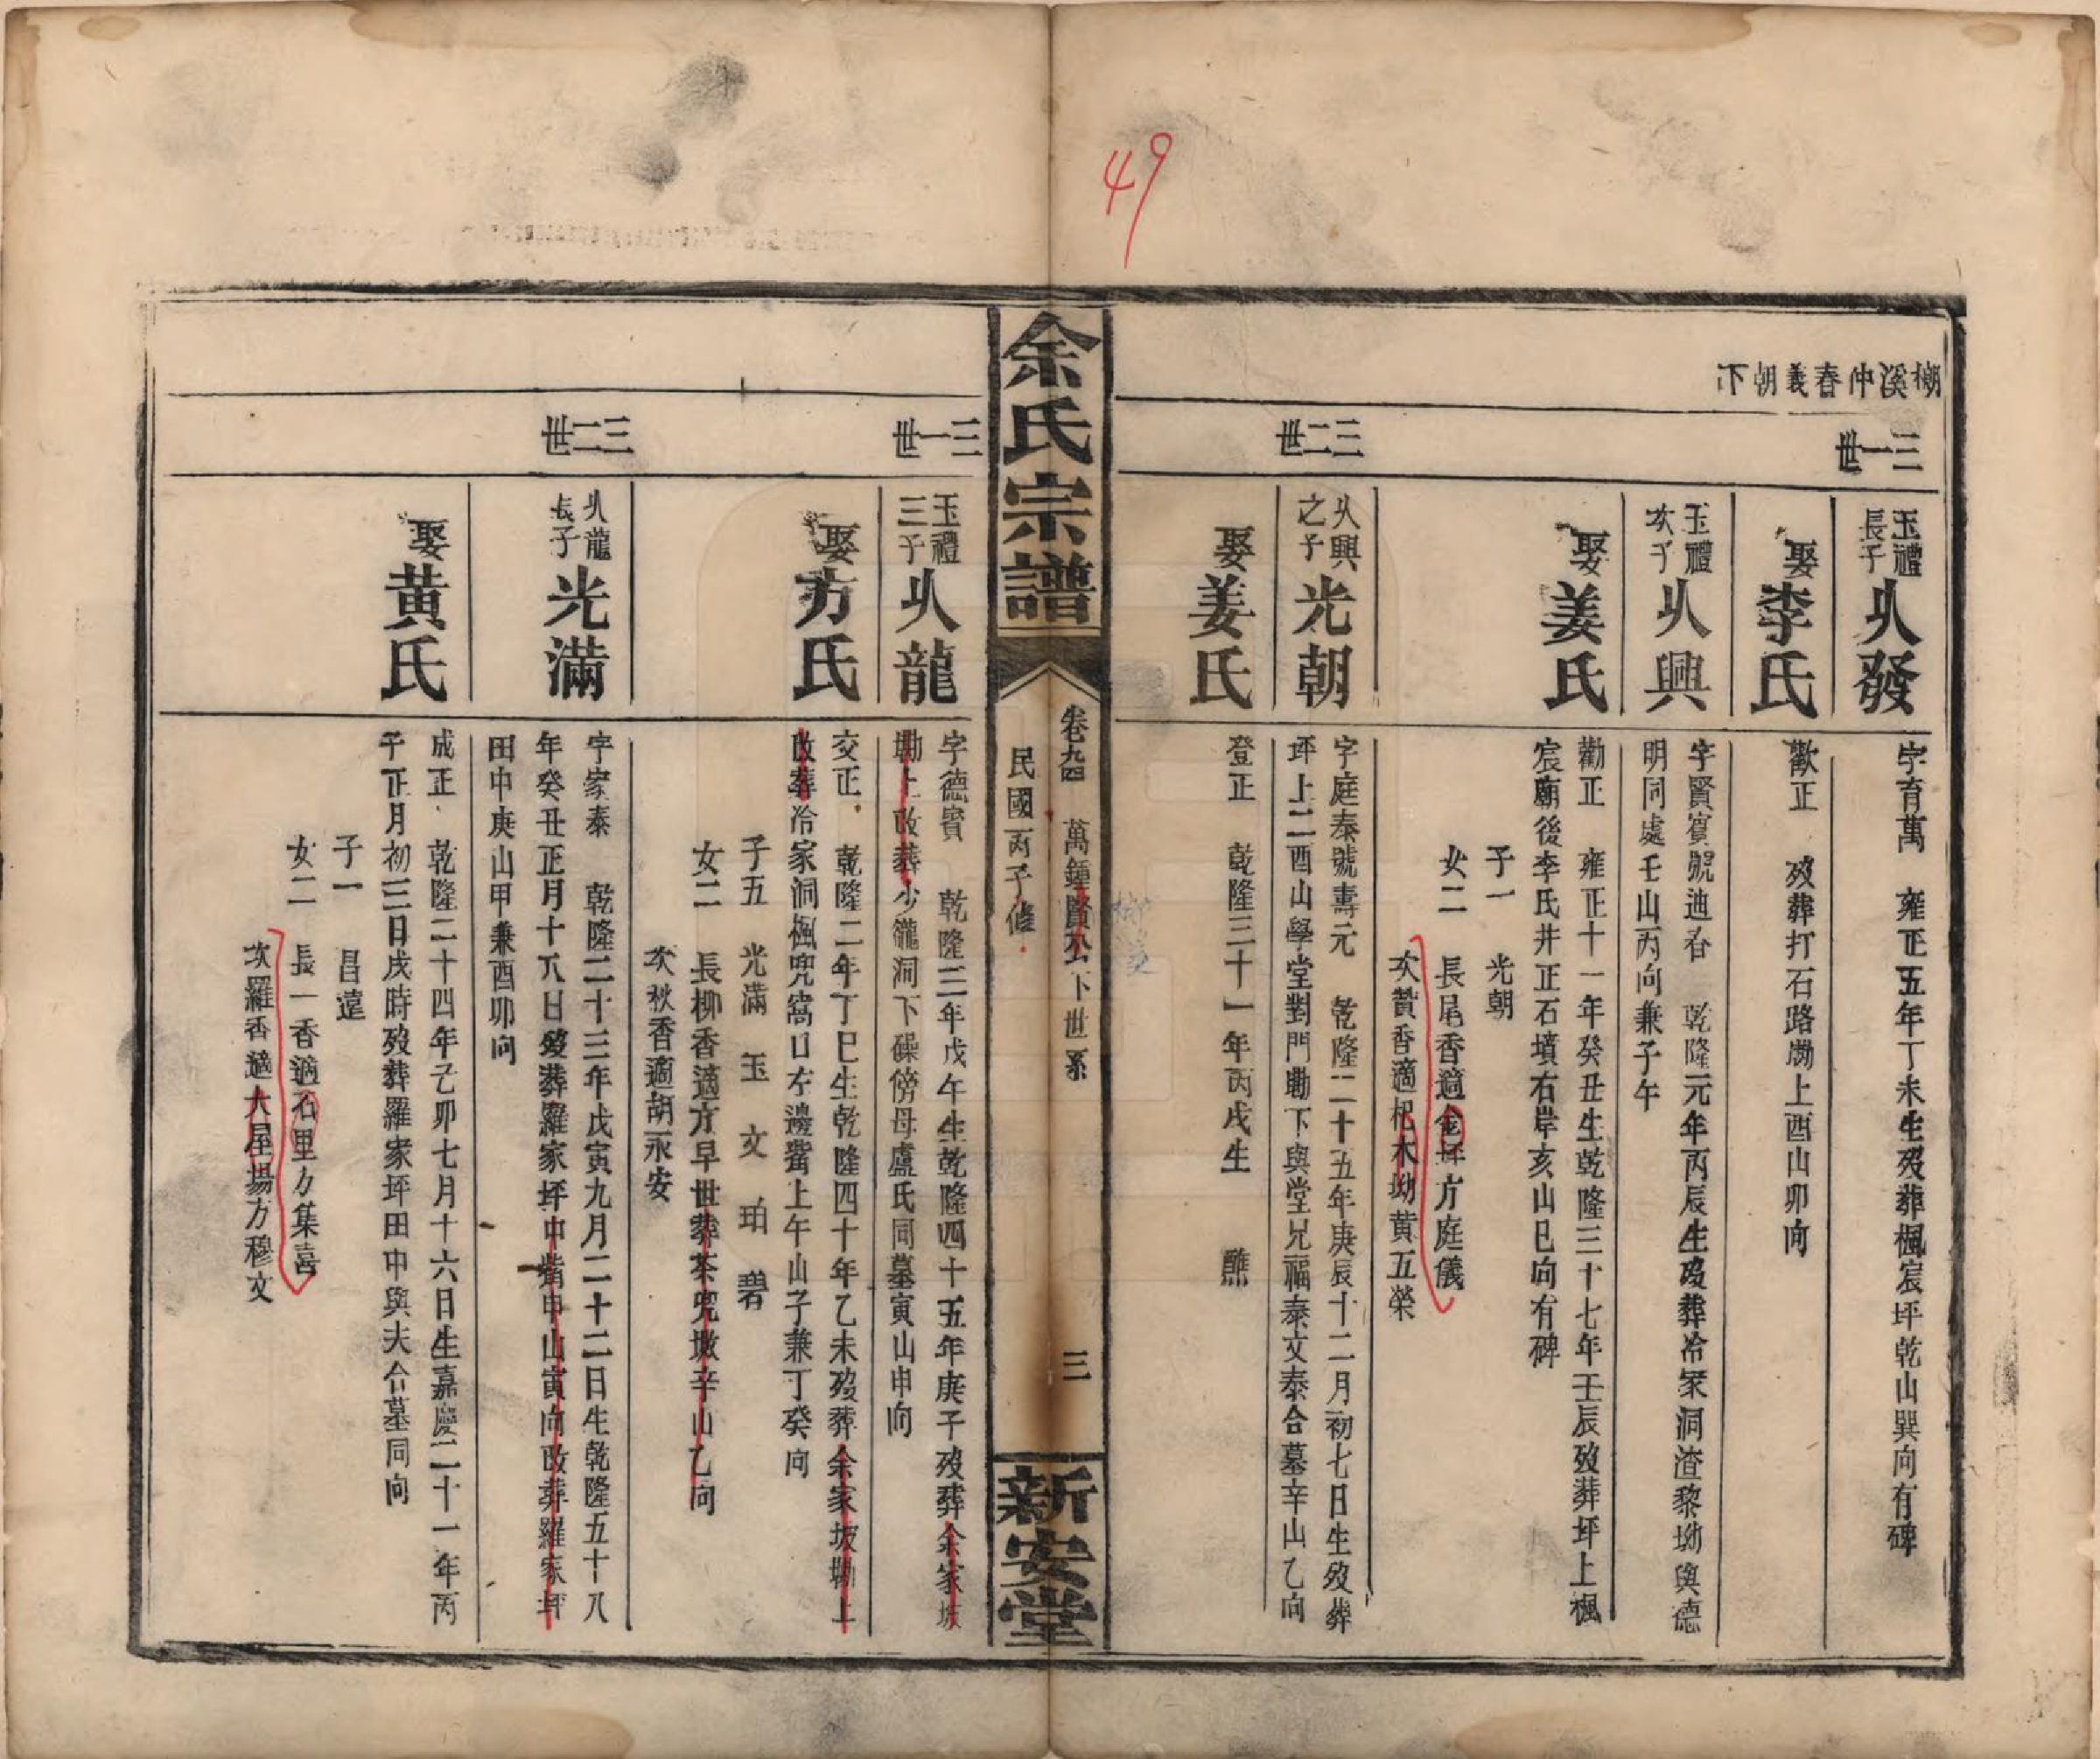 49
柳溪沖春義朝下
三一世
玉禮長子 从發
字育萬 雍正五年丁未生歿葬楓宸坪乾山巽向有碑
娶李氏
歡正 歿葬打石路墈上酉山卯向
玉禮次子 从興
字賢賓號迪谷 乾隆元年丙辰生歿葬冷家洞渣黎坳與德
明同處壬山丙向兼子午
娶姜氏
勸正 雍正十一年癸丑生乾隆三十七年壬辰歿葬坪上楓
宸廟後李氏井正石墳右岸亥山巳向有碑
子一 光朝
女二 長尾香適金坪方庭儀
次贊香適杞木坳黄五榮
三二世
从興之子 光朝
字庭泰號壽元 乾隆二十五年庚辰十二月初七日生歿葬
坪上二酉山學堂對門墈下與堂兄福泰文泰合墓辛山乙向
娶姜氏
登正 乾隆三十一年丙戌生 醮
余氏宗譜
卷九四 萬鍾賢公下世系 三
民國丙子修
新安堂
三一世
玉禮三子 从龍
字德賓 乾隆三年戊午生乾隆四十五年庚子歿葬余家坡
墈上改葬少籠洞下磉傍母盧氏同墓寅山申向
娶方氏
交正 乾隆二年丁巳生乾隆四十年乙未歿葬余家坡墈上
改葬冷家洞楓兜窩口左邊嘴上午山子兼丁癸向
子五 光滿 玉 文 珀 碧
女二 長柳香適方早世葬茶兜墩辛山乙向
次秋香適胡永安
三二世
从龍長子 光滿
字家泰 乾隆二十三年戊寅九月二十二日生乾隆五十八
年癸丑正月十八日歿葬羅家坪中嘴申山寅向改葬羅家坪
田中庚山甲兼酉卯向
娶黄氏
成正 乾隆二十四年己卯七月十六日生嘉慶二十一年丙
子正月初三日戌時歿葬羅家坪田中與夫合墓同向
子一 昌遠
女二 長一香適石里方集喜
次羅香適大屋場方穆文